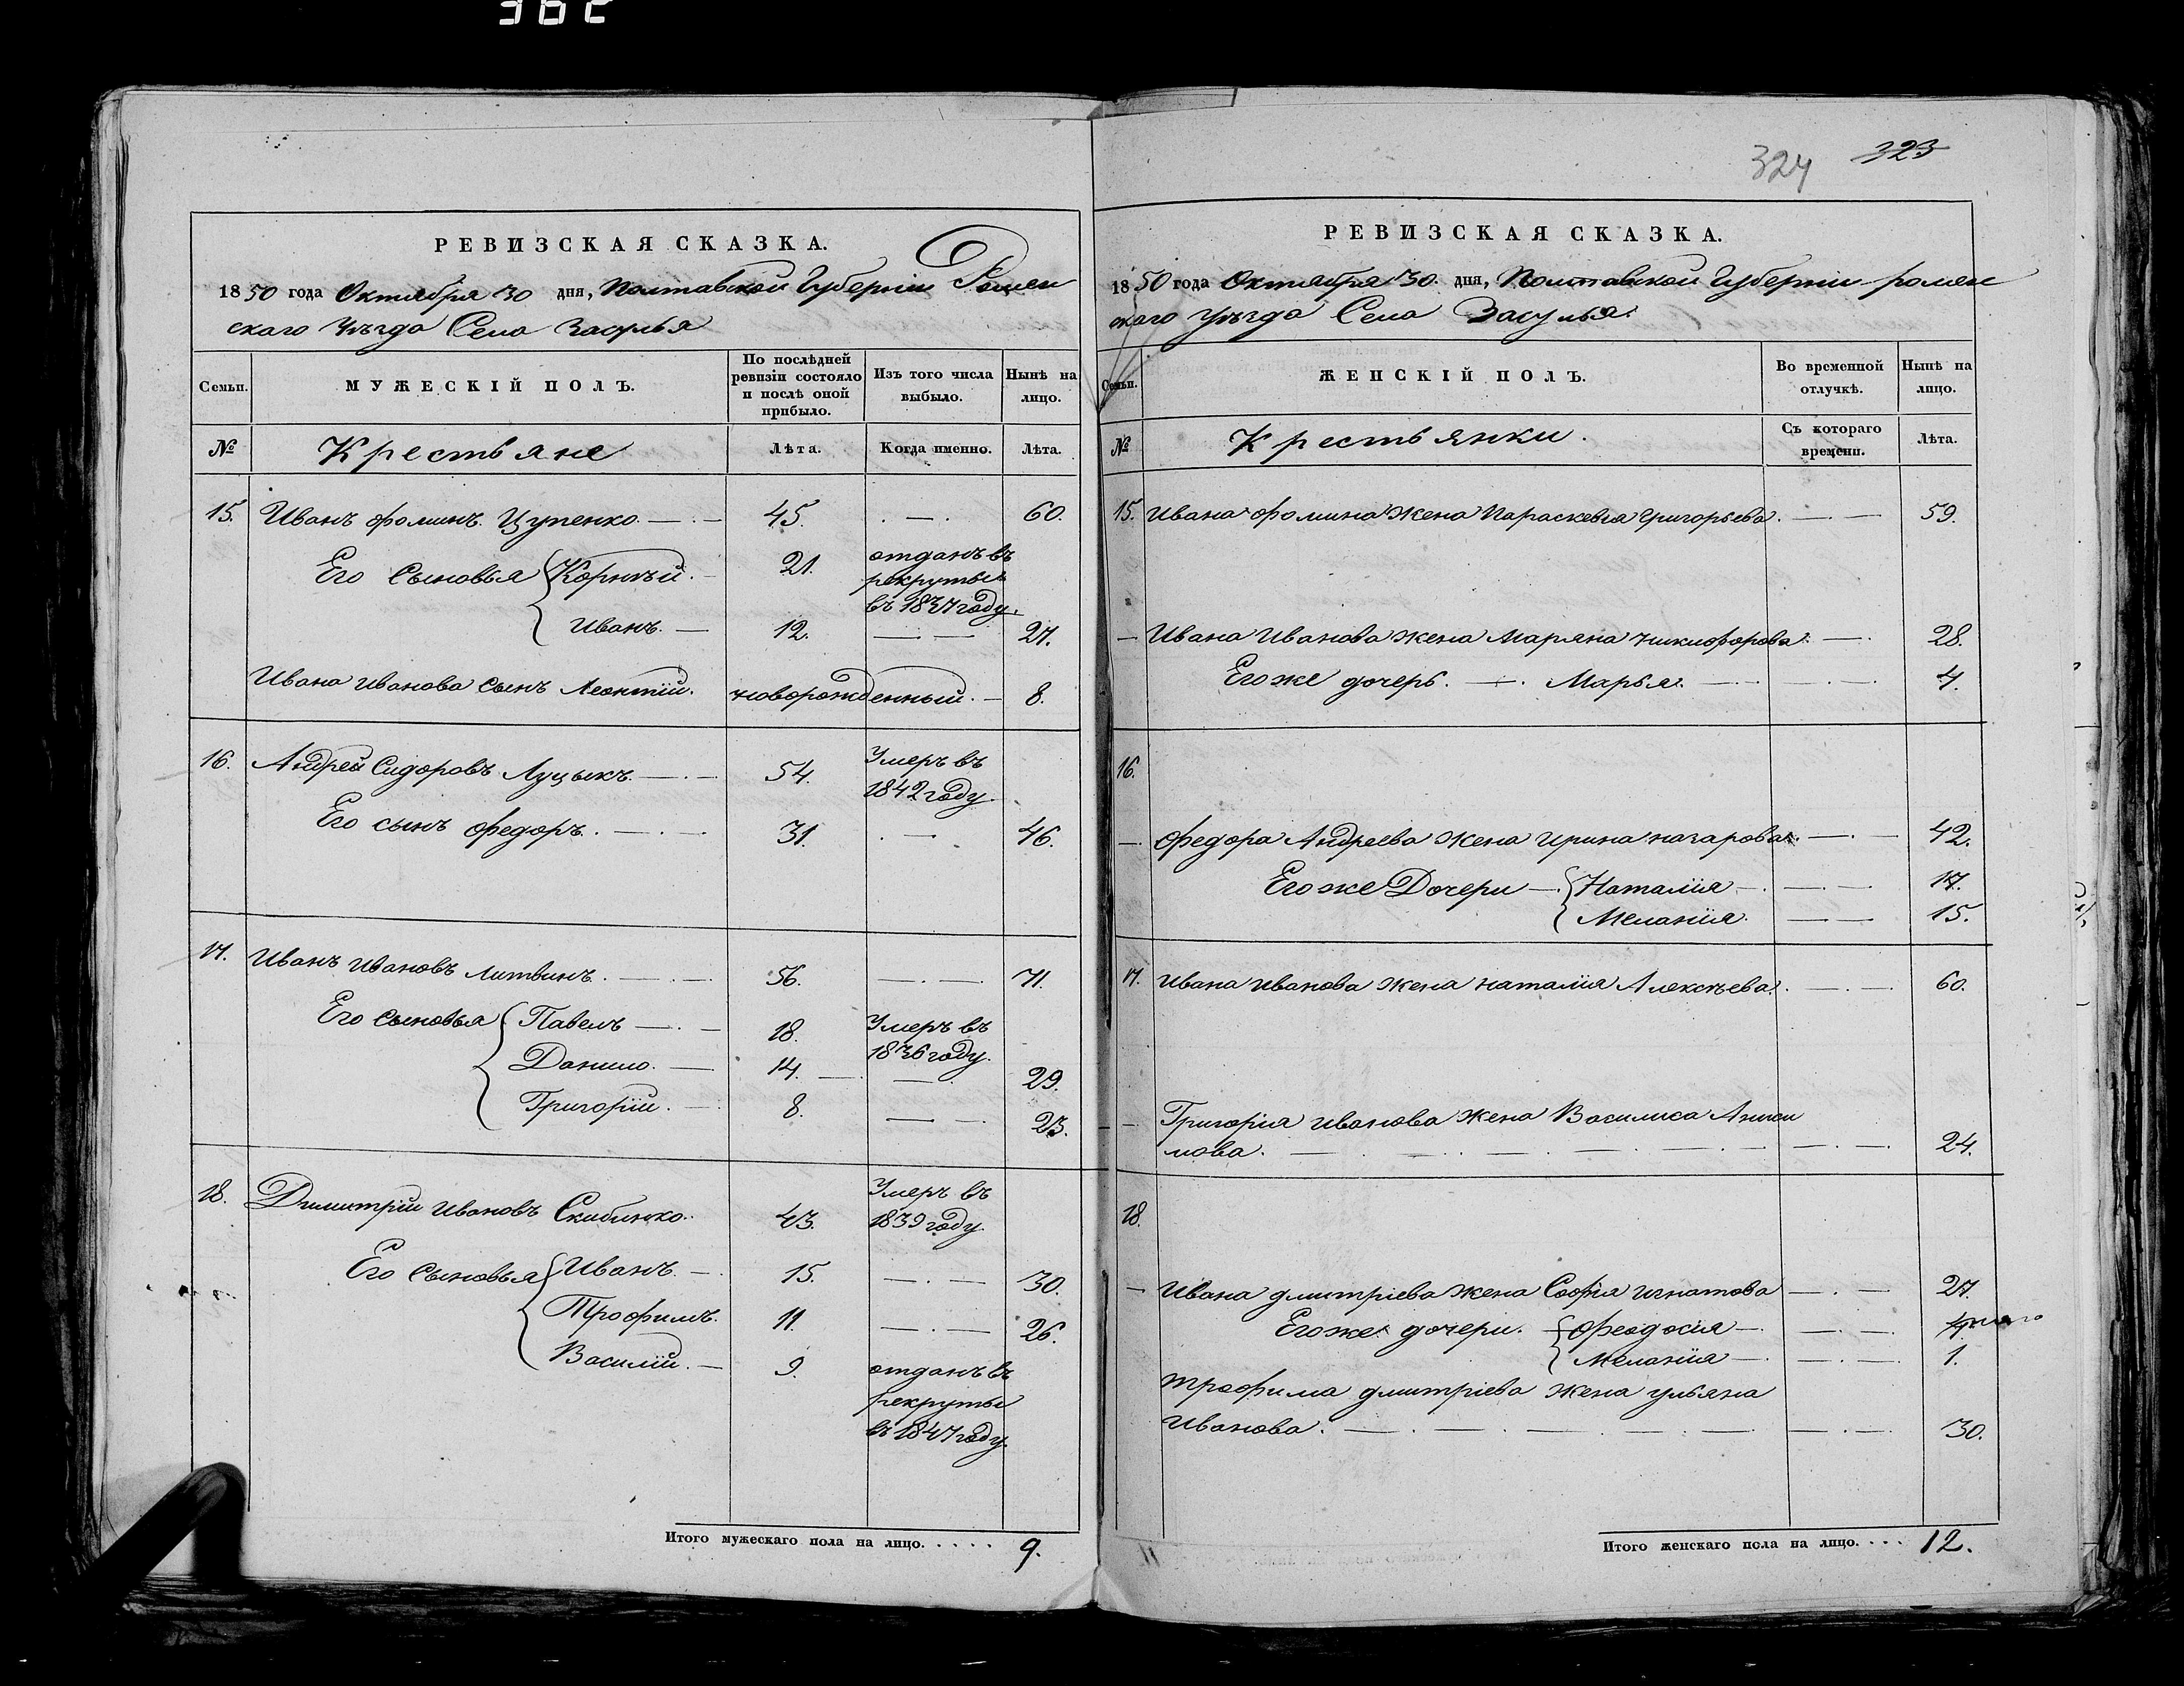 382
324 323
РЕВИЗСКАЯ СКАЗКА.
1850 года Октября 30 дня, Полтавской Губерніи Ромен
скаго Уѣзда Села Засулья
Семьи. МУЖЕСКІЙ ПОЛЪ. По послѣдней ревизіи состояло и послѣ оной прибыло. Изъ того числа выбыло. Нынѣ на лицо.
№ Крестьяне Лѣта. Когда именно. Лѣта.
15. Иванъ Фоминъ Цупенко 45. 60.
Его Сыновья Корнѣй. 21. отданъ въ рекруты въ 1837 году.
Иванъ. 12. 27.
Ивана Иванова сынъ Леонтій. новорожденный. 8.
16. Андрей Сидоровъ Луцыкъ. 54. Умеръ въ 1842 году.
Его сынъ Федоръ. 31. 46.
17. Иванъ Ивановъ Литвинъ. 56. 71.
Его Сыновья Павелъ 18. Умеръ въ 1836 году.
Данило. 14. 29.
Григорій. 8. 23.
18. Димитрій Ивановъ Скибинко. 43. Умеръ въ 1839 году.
Его Сыновья Иванъ. 15. 30.
Трофимъ. 11. 26.
Василій. 9. отданъ въ рекруты въ 1847 году.
Итого мужескаго пола на лицо. 9.
РЕВИЗСКАЯ СКАЗКА.
1850 года Октября 30. дня, Полтавской Губерніи ромен
скаго уѣзда Села Засулья.
Семьи. ЖЕНСКІЙ ПОЛЪ. Во временной отлучкѣ. Нынѣ на лицо.
№ Крестьянки. Съ котораго времени. Лѣта.
15. Ивана Фомина жена Параскевія Григорьева. 59.
Ивана Иванова жена Марьяна Никифорова. 28.
Его же дочерь. Марья. 4.
16.
Федора Андреева жена Ирина Назарова. 42.
Его же Дочери Наталія 17.
Меланія. 15.
17. Ивана Иванова жена Наталія Алексѣева. 60.
Григорія Иванова жена Василиса Аниси
мова. 24.
18.
Ивана Дмитріева жена Софія Игнатова 27.
Его же дочери. Феодосія
Меланія 1.
Трофима Дмитріева жена Ульяна
Иванова. 30.
Итого женскаго пола на лицо. 12.